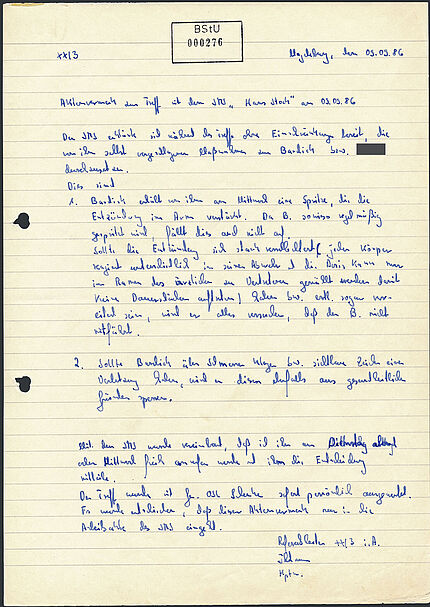 BStU
000276
XX/3
Magdeburg, den 09.09.86
Aktenvermerk zum Treff mit dem IMS „Hans Stock" am 09.09.86
Der IMS erklärte sich während des Treffs ohne Einschränkungen bereit, die
von ihm selbst vorgeschlagenen Maßnahmen zum Bardick bzw.
durchzusetzen.
Dies sind
1. Bardick erhält von ihm am Mittwoch eine Spritze, die die
Entzündung im Arm verstärkt. Da B. sowieso regelmäßig
gespritzt wird, fällt dies auch nicht auf.
Sollte die Entzündung sich stark verschlechtert (jeder Körper
reagiert unterschiedlich in seiner Abwehr u. die Dosis kann nur
im Rahmen des ärztlichen zu Vertretenen gewählt werden damit
keine Dauerschäden auftreten) haben bzw. evtl. sogar
sein, wird er alles versuchen, daß der B. nicht
mitfährt.
2. Sollte Bardick über Schmerzen klagen bzw. sichtbare Zeichen einer
Verletzung haben, wird er diesen ebenfalls aus gesundheitlichen
Gründen sperren.
Mit dem IMS wurde vereinbart, daß ich ihn am
oder Mittwoch früh anrufen werde u. ihm die Entscheidung
mitteile.
Der Treff wurde mit Gen. OSL Schenke sofort persönlich ausgewertet.
Es wurde entschieden, daß dieser Aktenvermerk nur in die
Arbeitsakte des IMS eingeht.
Referatsleiter XX/3 i.A.
Hptm.